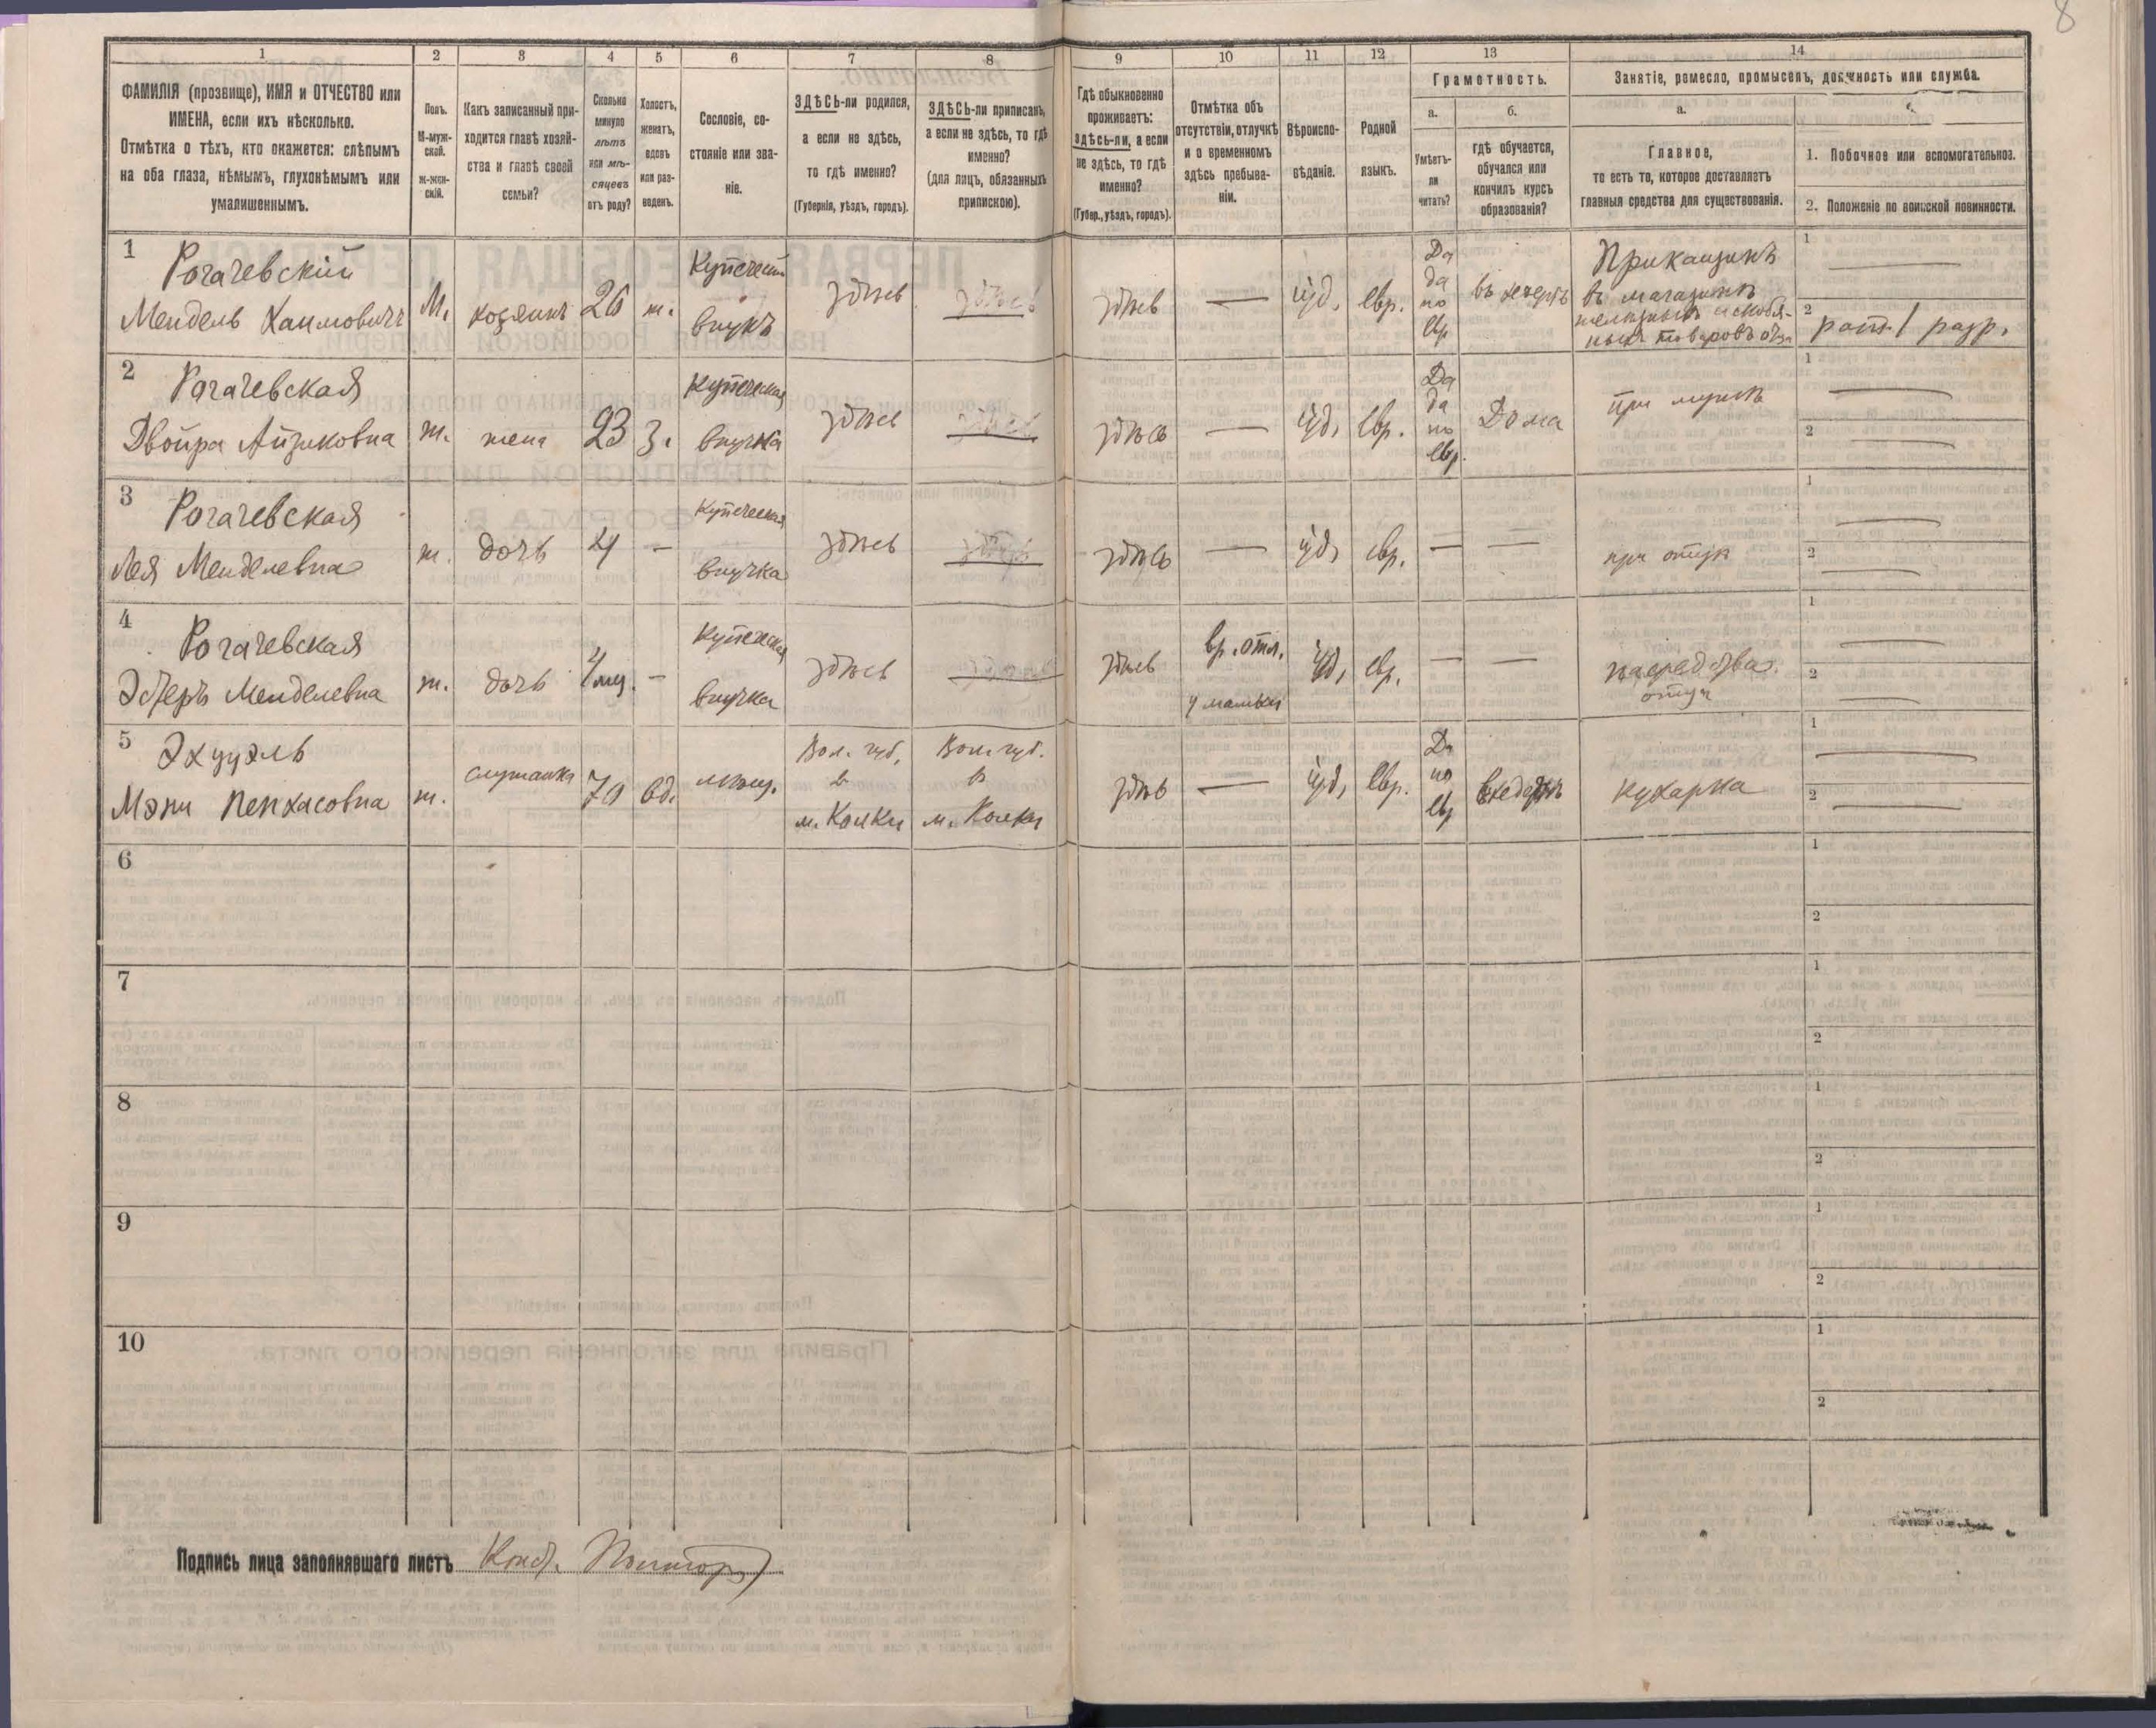 8
1
2
3
4
5
6
7
8
9
10
11
12
13
14
ФАМИЛІЯ (прозвище), ИМЯ и ОТЧЕСТВО или
ИМЕНА, если ихъ нѣсколько.
Отмѣтка о тѣхъ, кто окажется: слѣпымъ
на оба глаза, нѣмымъ, глухонѣмымъ или
умалишеннымъ.
Полъ.
М-муж-
ской.
ж-жен-
скій.
Какъ записанный при-
ходится главѣ хозяй-
ства и главѣ своей
семьи?
Сколько
минуло
лѣтъ
или мѣ-
сяцевъ
отъ роду?
Холостъ,
женатъ,
вдовъ
или раз-
веденъ.
Сословіе, со-
стояніе или зва-
ніе.
ЗДѢСЬ-ли родился,
а если не здѣсь,
то гдѣ именно?
(Губернія, уѣздъ, городъ).
ЗДѢСЬ-ли приписанъ,
а если не здѣсь, то гдѣ
именно?
(для лицъ, обязанныхъ
припискою).
Гдѣ обыкновенно
проживаетъ:
здѣсь-ли, а если
не здѣсь, то гдѣ
именно?
(Губер., уѣздъ, городъ).
Отмѣтка объ
отсутствіи, отлучкѣ
и о временномъ
здѣсь пребыва-
ніи.
Вѣроиспо-
вѣданіе.
Родной
языкъ.
Грамотность.
а.
Умѣетъ-
ли
читать?
б.
гдѣ обучается,
обучался или
кончилъ курсъ
образованія?
Занятіе, ремесло, промыселъ, должность или служба.
а.
Главное,
то есть то, которое доставляетъ
главныя средства для существованія.
1. Побочное или вспомогательное.
2. Положеніе по воинской повинности.
1
Рогачевскій
Мендель Хаимовичъ
М.
хозяинъ
26
ж.
Купечесій
внукъ
здѣсь
здѣсь
здѣсь
—
іуд.
евр.
Да
да
по
евр
въ хедерѣ
Прикащикъ
въ магазинѣ
1
2
2
Рогачевская
Двойра Айзиковна
ж.
жена
23
З.
Купеческая
внучка
здѣсь
здѣсь
—
іуд.
евр.
Да
да
по
евр.
Дома
при мужѣ
1
2
3
Рогачевская
Лея Менделевна
ж.
дочь
4
—
Купеческая
внучка
здѣсь
здѣсь
—
іуд.
евр.
—
—
при отцѣ
1
2
4
Рогачевская
Эстеръ Менделевна
ж.
дочь
4 мц.
—
Купеческая
внучка
здѣсь
здѣсь
вр. отл.
іуд.
евр.
—
—
на средства
отца
1
2
5
Мэни Пенхасовна
ж.
служанка
70
вд.
мѣщ.
Вол. губ.
в
м. Колки
Вол. губ.
в
м. Колки
здѣсь
—
іуд.
евр.
Да
по
евр
кухарка
1
2
6
1
2
7
1
2
8
1
2
9
1
2
10
1
2
Подпись лица заполнявшаго листъ